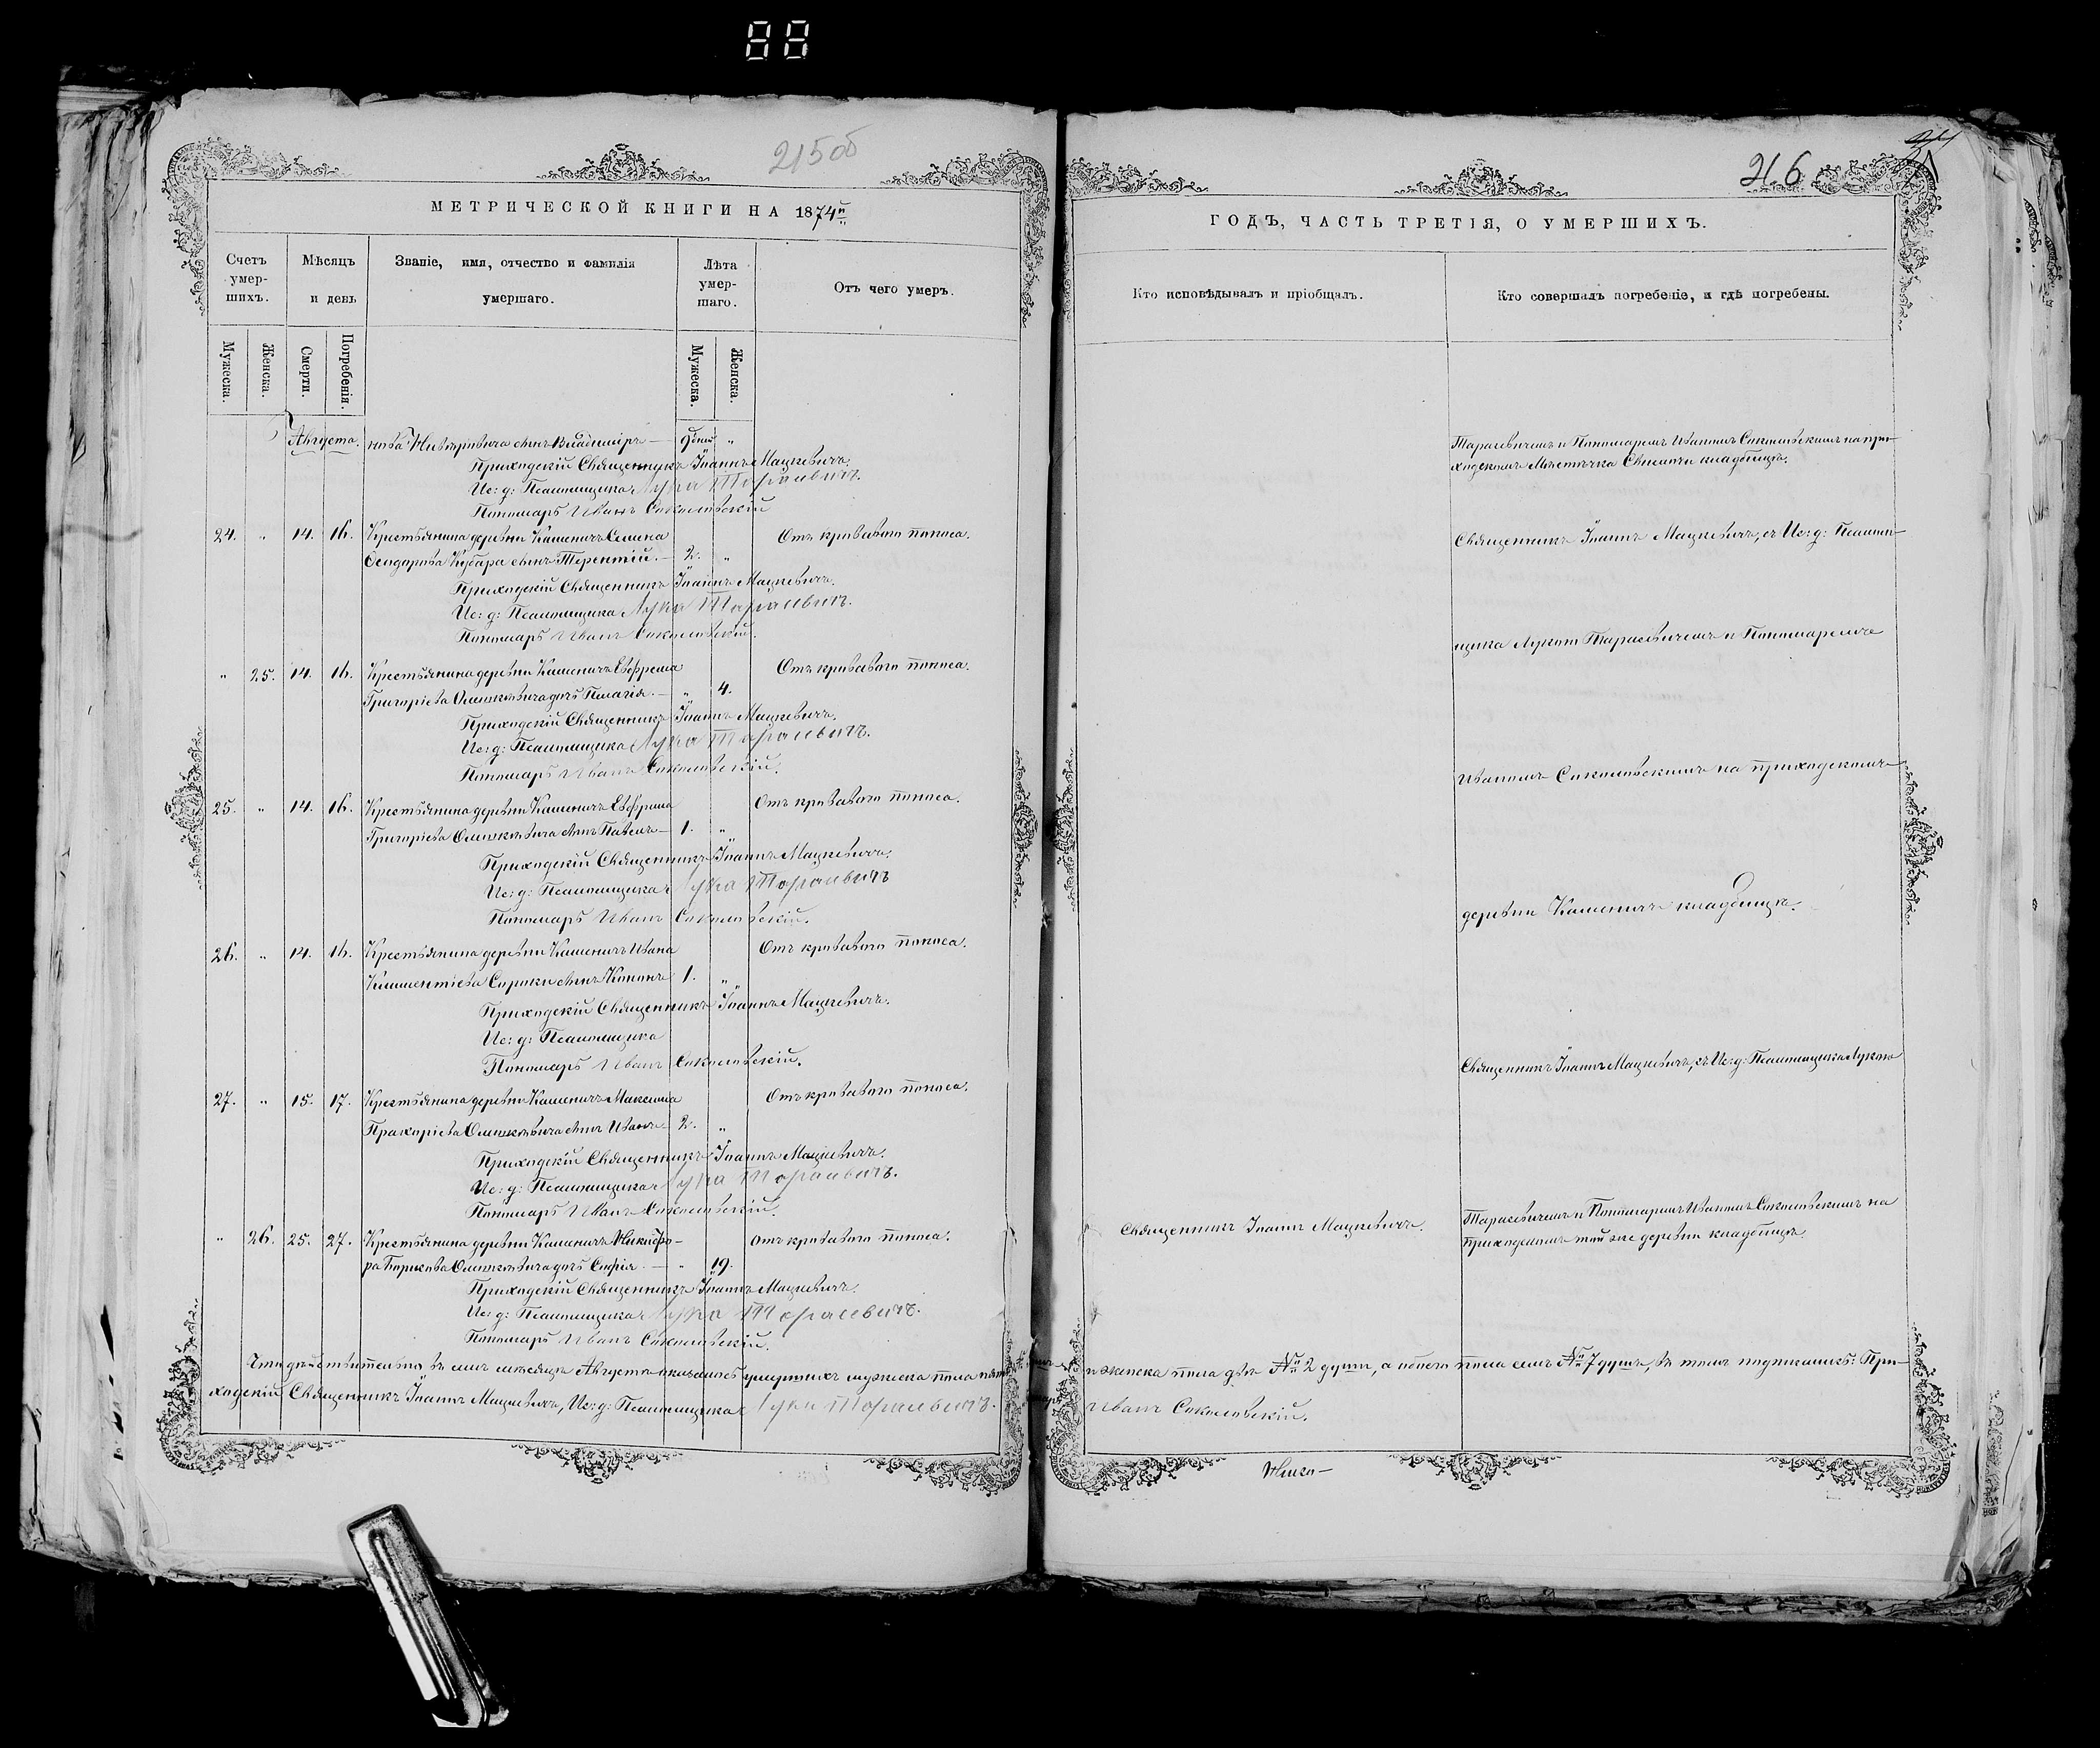 88
215об
216
МЕТРИЧЕСКОЙ КНИГИ НА 1874й
Счетъ умер-
шихъ.
Мѣсяцъ
и день
Званіе, имя, отчество и фамилія
умершаго.
Лѣта
умер-
шаго.
Отъ чего умеръ.
Мужеска.
Женска.
Смерти.
Погребенія.
Мужеска.
Женска.
Августа. сынъ Владиміръ — 9 дней "
Приходскій Священникъ Іоаннъ Мацкевичъ.
Ис: д: Псаломщика Лука Тарасевичъ.
Пономарь Иванъ Соколовскій
24. " 14. 16. Крестьянина деревни Каменичъ Семена Отъ кроваваго поноса.
Кубара сынъ Терентій. — 2. "
Приходскій Священникъ Іоаннъ Мацкевичъ.
Ис: д: Псаломщика Лука Тарасевичъ.
Пономарь Иванъ Соколовскій.
" 25. 14. 16. Крестьянина деревни Каменичъ Евфрема Отъ кроваваго поноса.
Григоріева дочь Пелагія. — " 4.
Приходскій Священникъ Іоаннъ Мацкевичъ.
Ис: д: Псаломщика Лука Тарасевичъ.
Пономарь Иванъ Соколовскій.
25. " 14. 16. Крестьянина деревни Каменичъ Евфрема Отъ кроваваго поноса.
Григоріева сынъ Павелъ — 1. "
Приходскій Священникъ Іоаннъ Мацкевичъ.
Ис: д: Псаломщика Лука Тарасевичъ
Пономарь Иванъ Соколовскій.
26. " 14. 16. Крестьянина деревни Каменичъ Ивана Отъ кроваваго поноса.
Климентіева Сороки сынъ Кононъ 1. "
Приходскій Священникъ Іоаннъ Мацкевичъ.
Ис: д: Псаломщика
Пономарь Иванъ Соколовскій.
27. " 15. 17. Крестьянина деревни Каменичъ Максима Отъ кроваваго поноса.
Прокоріева сынъ Иванъ — 2. "
Приходскій Священникъ Іоаннъ Мацкевичъ.
Ис: д: Псаломщика Лука Тарасевичъ.
Пономарь Иванъ Соколовскій.
" 26. 25. 27. Крестьянина деревни Каменичъ Никифо- Отъ кроваваго поноса.
ра Борисова дочь Софія. — " 19.
Приходскій Священникъ Іоаннъ Мацкевичъ.
Ис: д: Псаломщика Лука Тарасевичъ.
Пономарь Иванъ Соколовскій.
Что действительно въ семъ мѣсяцѣ Августѣ оказалось умершихъ мужеска пола
ходскій Священникъ Іоаннъ Мацкевичъ, Ис: д: Псаломщика Лука Тарасевичъ.
ГОДЪ, ЧАСТЬ ТРЕТІЯ, О УМЕРШИХЪ.
Кто исповѣдывалъ и пріобщалъ.
Кто совершалъ погребеніе, и гдѣ погребены.
Тарасевичемъ и Пономаремъ Иваномъ Соколовскимъ на при-
ходскомъ Мѣстечка Свислочи кладбищѣ.
Священникъ Іоаннъ Мацкевичъ, съ Ис: д: Псалом-
щика Лукою Тарасевичемъ и Пономаремъ
Иваномъ Соколовскимъ на приходскомъ
деревни Каменичъ кладбищѣ.
Священникъ Іоаннъ Мацкевичъ, съ Ис: д: Псаломщика Лукою
Священникъ Іоаннъ Мацкевичъ. Тарасевичемъ и Пономаремъ Иваномъ Соколовскимъ на
приходскомъ той же деревни кладбищѣ.
и женска пола двѣ № 2 души, а обоего пола семь № 7 душъ, въ томъ подписались: При-
Иванъ Соколовскій.